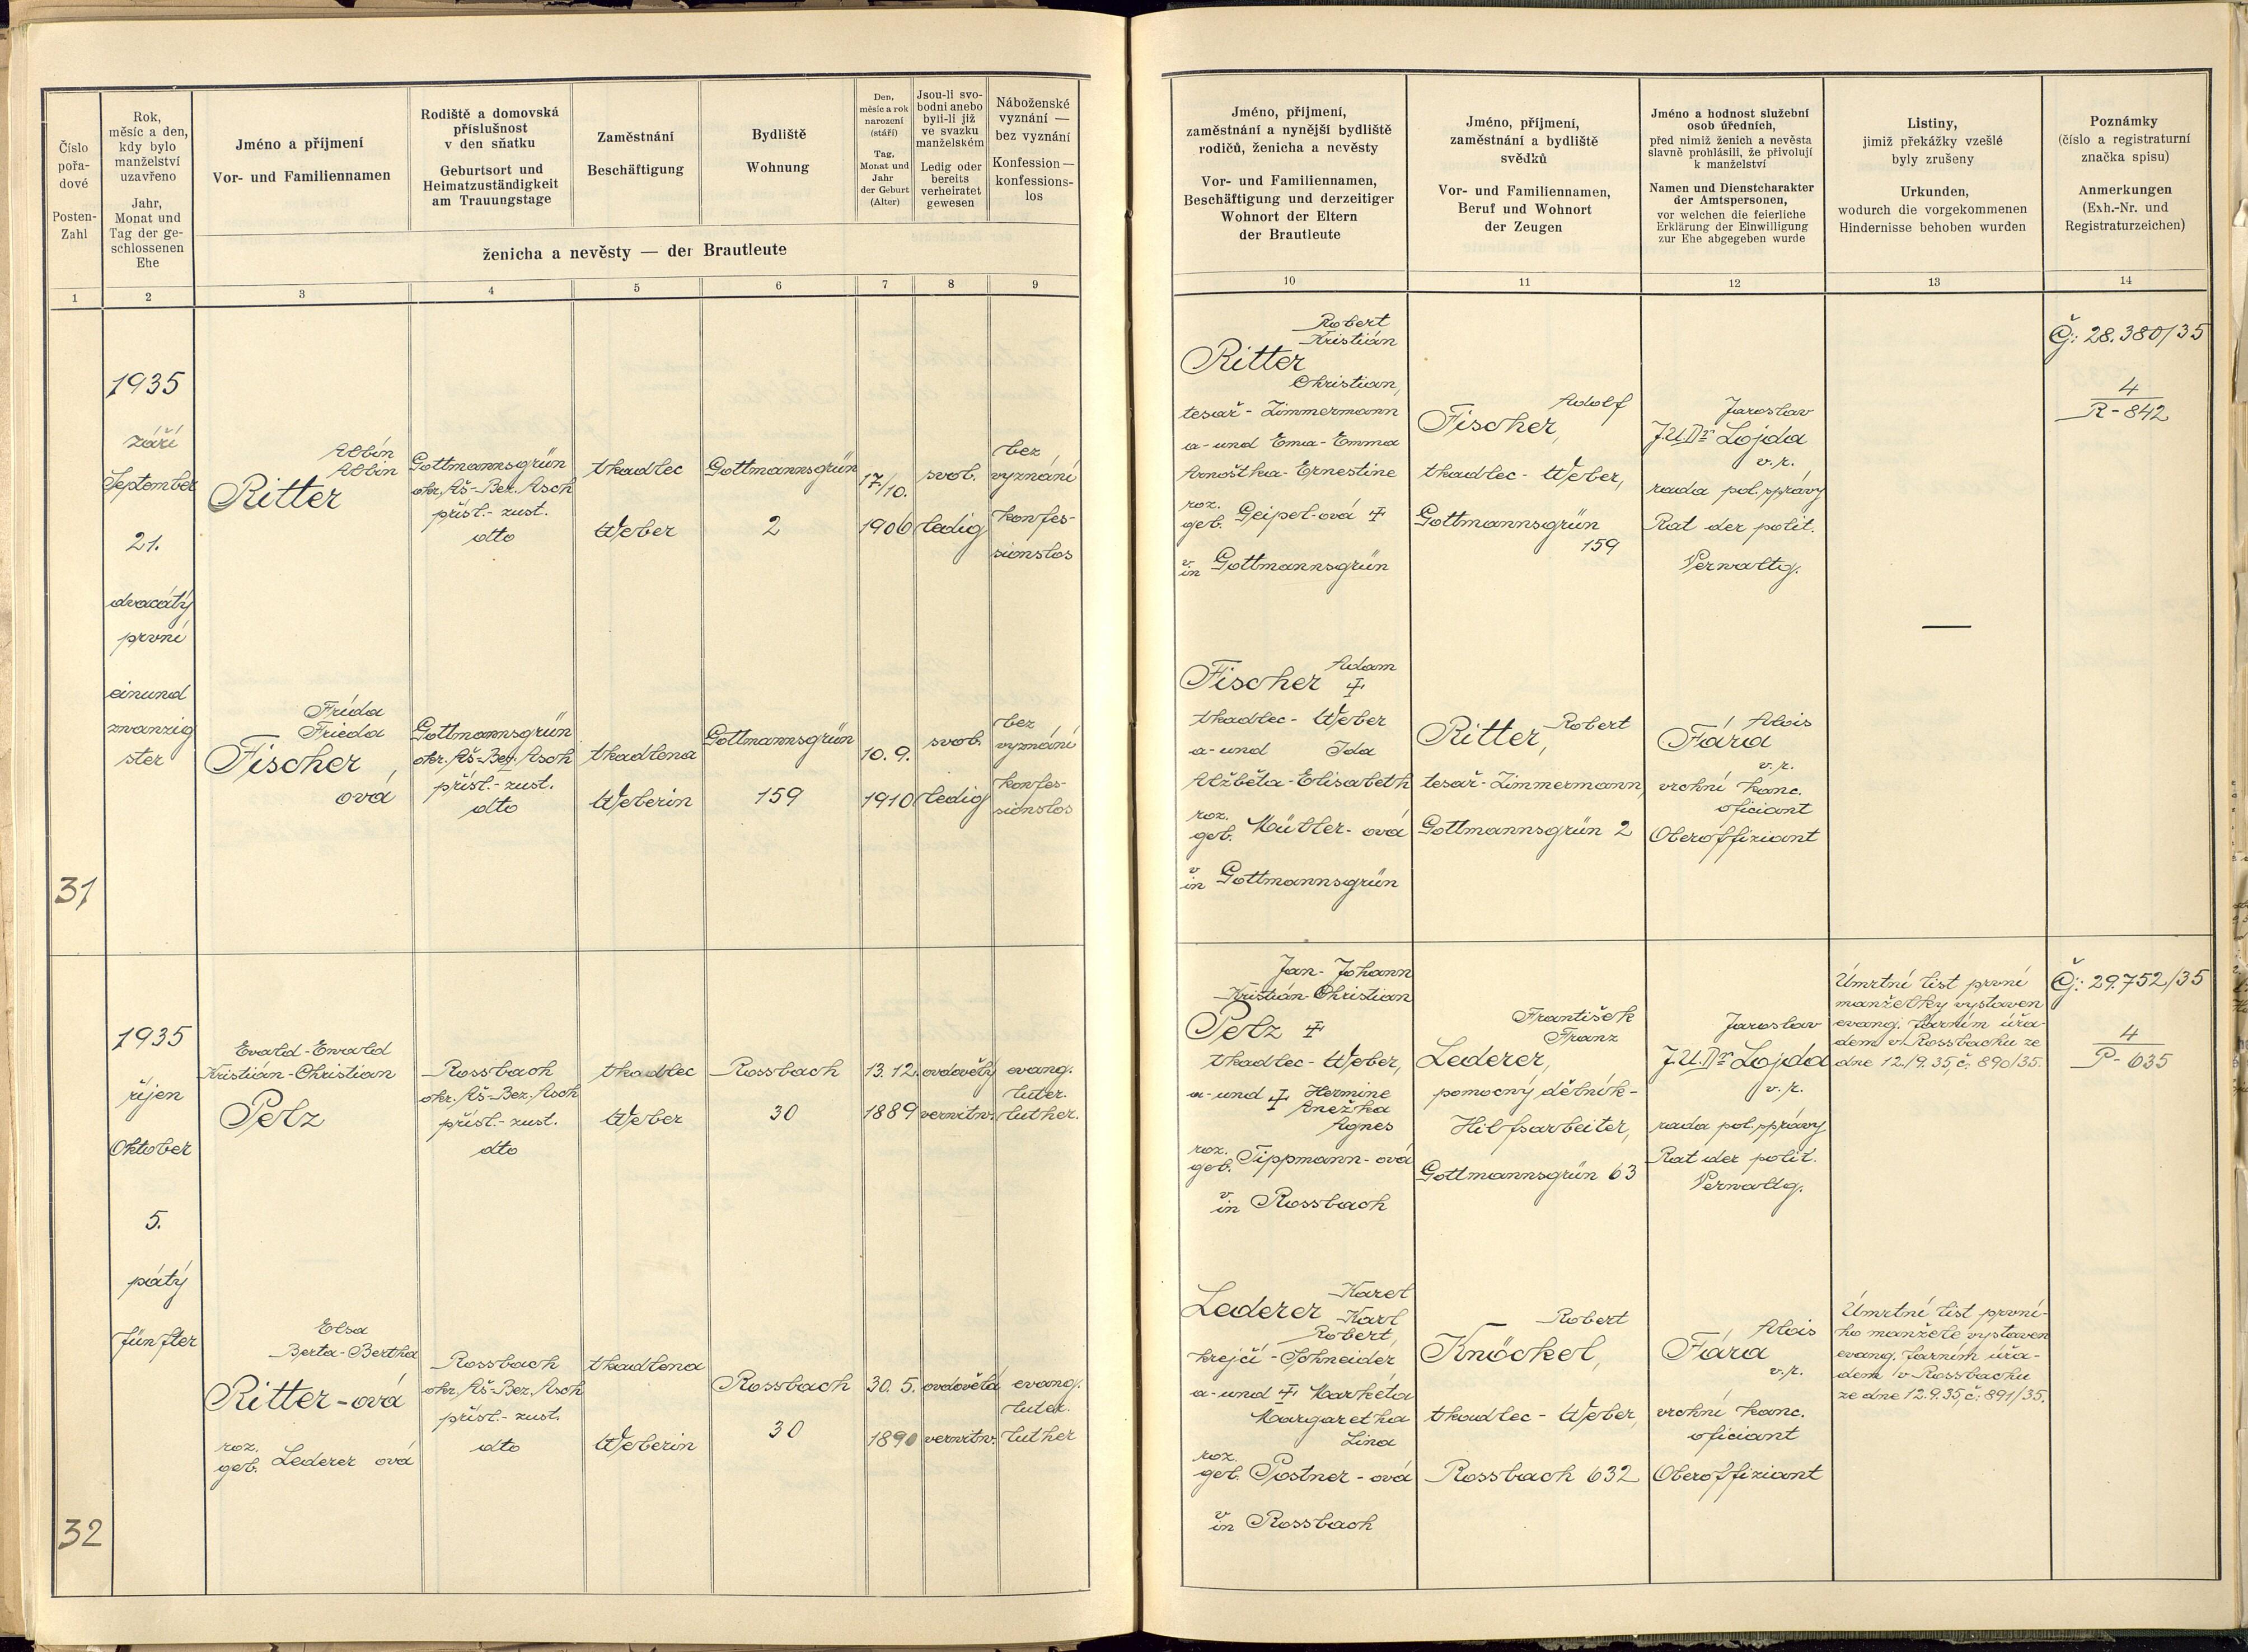 Číslo
pořa-
dové
Posten-
Zahl
Rok,
měsíc a den,
kdy bylo
manželství
uzavřeno
Jahr,
Monat und
Tag der ge-
schlossenen
Ehe
Jméno a příjmení
Vor- und Familiennamen
Rodiště a domovská
příslušnost
v den sňatku
Geburtsort und
Heimatzuständigkeit
am Trauungstage
Zaměstnání
Beschäftigung
Bydliště
Wohnung
Den,
měsíc a rok
narození
(stáří)
Tag,
Monat und
Jahr
der Geburt
(Alter)
Jsou-li svo-
bodni anebo
byli-li již
ve svazku
manželském
Ledig oder
bereits
verheiratet
gewesen
Náboženské
vyznání —
bez vyznání
Konfession —
konfessions-
los
ženicha a nevěsty — der Brautleute
1 2 3 4 5 6 7 8 9
31
1935
září
September
21.
dvacátý
první
einund
zwanzig
ster
Albín
Albin
Ritter
Gottmannsgrün
okr. Aš-Bez. Asch
přísl.- zust.
dto
tkadlec
Weber
Gottmannsgrün
2
17/10.
1906
svob.
ledig
bez
vyznání
konfes-
sionslos
Frída
Frieda
Fischer,
ová
Gottmannsgrün
okr. Aš-Bez. Asch
přísl.- zust.
dto
tkadlena
Weberin
Gottmannsgrün
159
10. 9.
1910
svob.
ledig
bez
vyznání
konfes-
sionslos
32
1935
říjen
Oktober
5.
pátý
fünfter
Evald-Ewald
Kristián-Christian
Pelz
Rossbach
okr. Aš-Bez. Asch
přísl.- zust.
dto
tkadlec
Weber
Rossbach
30
13. 12.
1889
ovdovělý
verwitw.
evang.
luter.
luther.
Elsa
Berta-Bertha
Ritter-ová
roz.
geb. Lederer ová
Rossbach
okr. Aš-Bez. Asch
přísl.- zust.
dto
tkadlena
Weberin
Rossbach
30
30. 5.
1890
ovdovělá
verwitw.
evang.
luter.
luther
Jméno, příjmení,
zaměstnání a nynější bydliště
rodičů, ženicha a nevěsty
Vor- und Familiennamen,
Beschäftigung und derzeitiger
Wohnort der Eltern
der Brautleute
Jméno, příjmení,
zaměstnání a bydliště
svědků
Vor- und Familiennamen,
Beruf und Wohnort
der Zeugen
Jméno a hodnost služební
osob úředních,
před nimiž ženich a nevěsta
slavně prohlásili, že přivolují
k manželství
Namen und Dienstcharakter
der Amtspersonen,
vor welchen die feierliche
Erklärung der Einwilligung
zur Ehe abgegeben wurde
Listiny,
jimiž překážky vzešlé
byly zrušeny
Urkunden,
wodurch die vorgekommenen
Hindernisse behoben wurden
Poznámky
(číslo a registraturní
značka spisu)
Anmerkungen
(Exh.-Nr. und
Registraturzeichen)
10 11 12 13 14
Robert
Kristián
Ritter
Christian,
tesař - Zimmermann
a-und Ema-Emma
Arnoštka-Ernestine
roz.
geb. Geipel-ová ‡
v
in Gottmannsgrün
Adolf
Fischer,
tkadlec - Weber,
Gottmannsgrün
159
Jaroslav
J.U.Dr. Lojda
v.r.
rada pol. správy
Rat der polit.
Verwaltg.
Čj: 28.380/35
4
R-842
Adam
Fischer ‡
tkadlec - Weber
a-und Ida
Alžběta-Elisabeth
roz.
geb. Müller-ová
v
in Gottmannsgrün
Ritter, Robert
tesař-Zimmermann,
Gottmannsgrün 2
Alois
Fára
v.r.
vrchní kanc.
oficiant
Oberoffiziant
—
Jan-Johann
Kristián-Christian
Pelz ‡
tkadlec-Weber,
a-und ‡ Hermine
Anežka
Agnes
roz.
geb. Tippmann-ová
v
in Rossbach
František
Franz
Lederer,
pomocný dělník-
Hilfsarbeiter,
Gottmannsgrün 63
Jaroslav
J.U.Dr. Lojda
v.r.
rada pol. správy
Rat der polit.
Verwaltg.
Úmrtní list první
manželky vystaven
evang. farním úřa-
dem v Rossbachu ze
dne 12./9.35, č. 890/35.
Čj: 29.752/35
4
P-635
Karel
Lederer Karl
Robert,
krejčí-Schneider
a-und ‡ Markéta
Margaretha
Lina
roz.
geb. Postner-ová
v
in Rossbach
Robert
Knöckel,
tkadlec - Weber,
Rossbach 632
Alois
Fára
v.r.
vrchní kanc.
oficiant
Oberoffiziant
Úmrtní list první-
ho manžele vystaven
evang. farním úřa-
dem v Rossbachu
ze dne 12.9.35, č. 891/35.